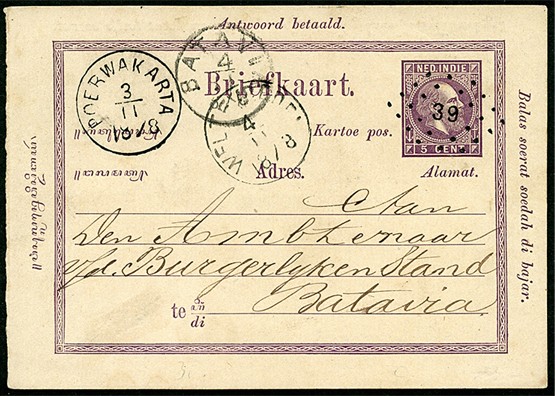 Antwoord betaald.
POERWAKARTA
3
11
1878
BATAVIA
4
NED. INDIE
39
5 CENT
Briefkaart.
WELTEVREDEN
4
11
1878
Kartoe pos.
Adres.
Alamat.
Balas soerat soedah di bajar.
Aan
Den Ambtenaar
v/d. Burgerlyken Stand
te in Batavia.
di